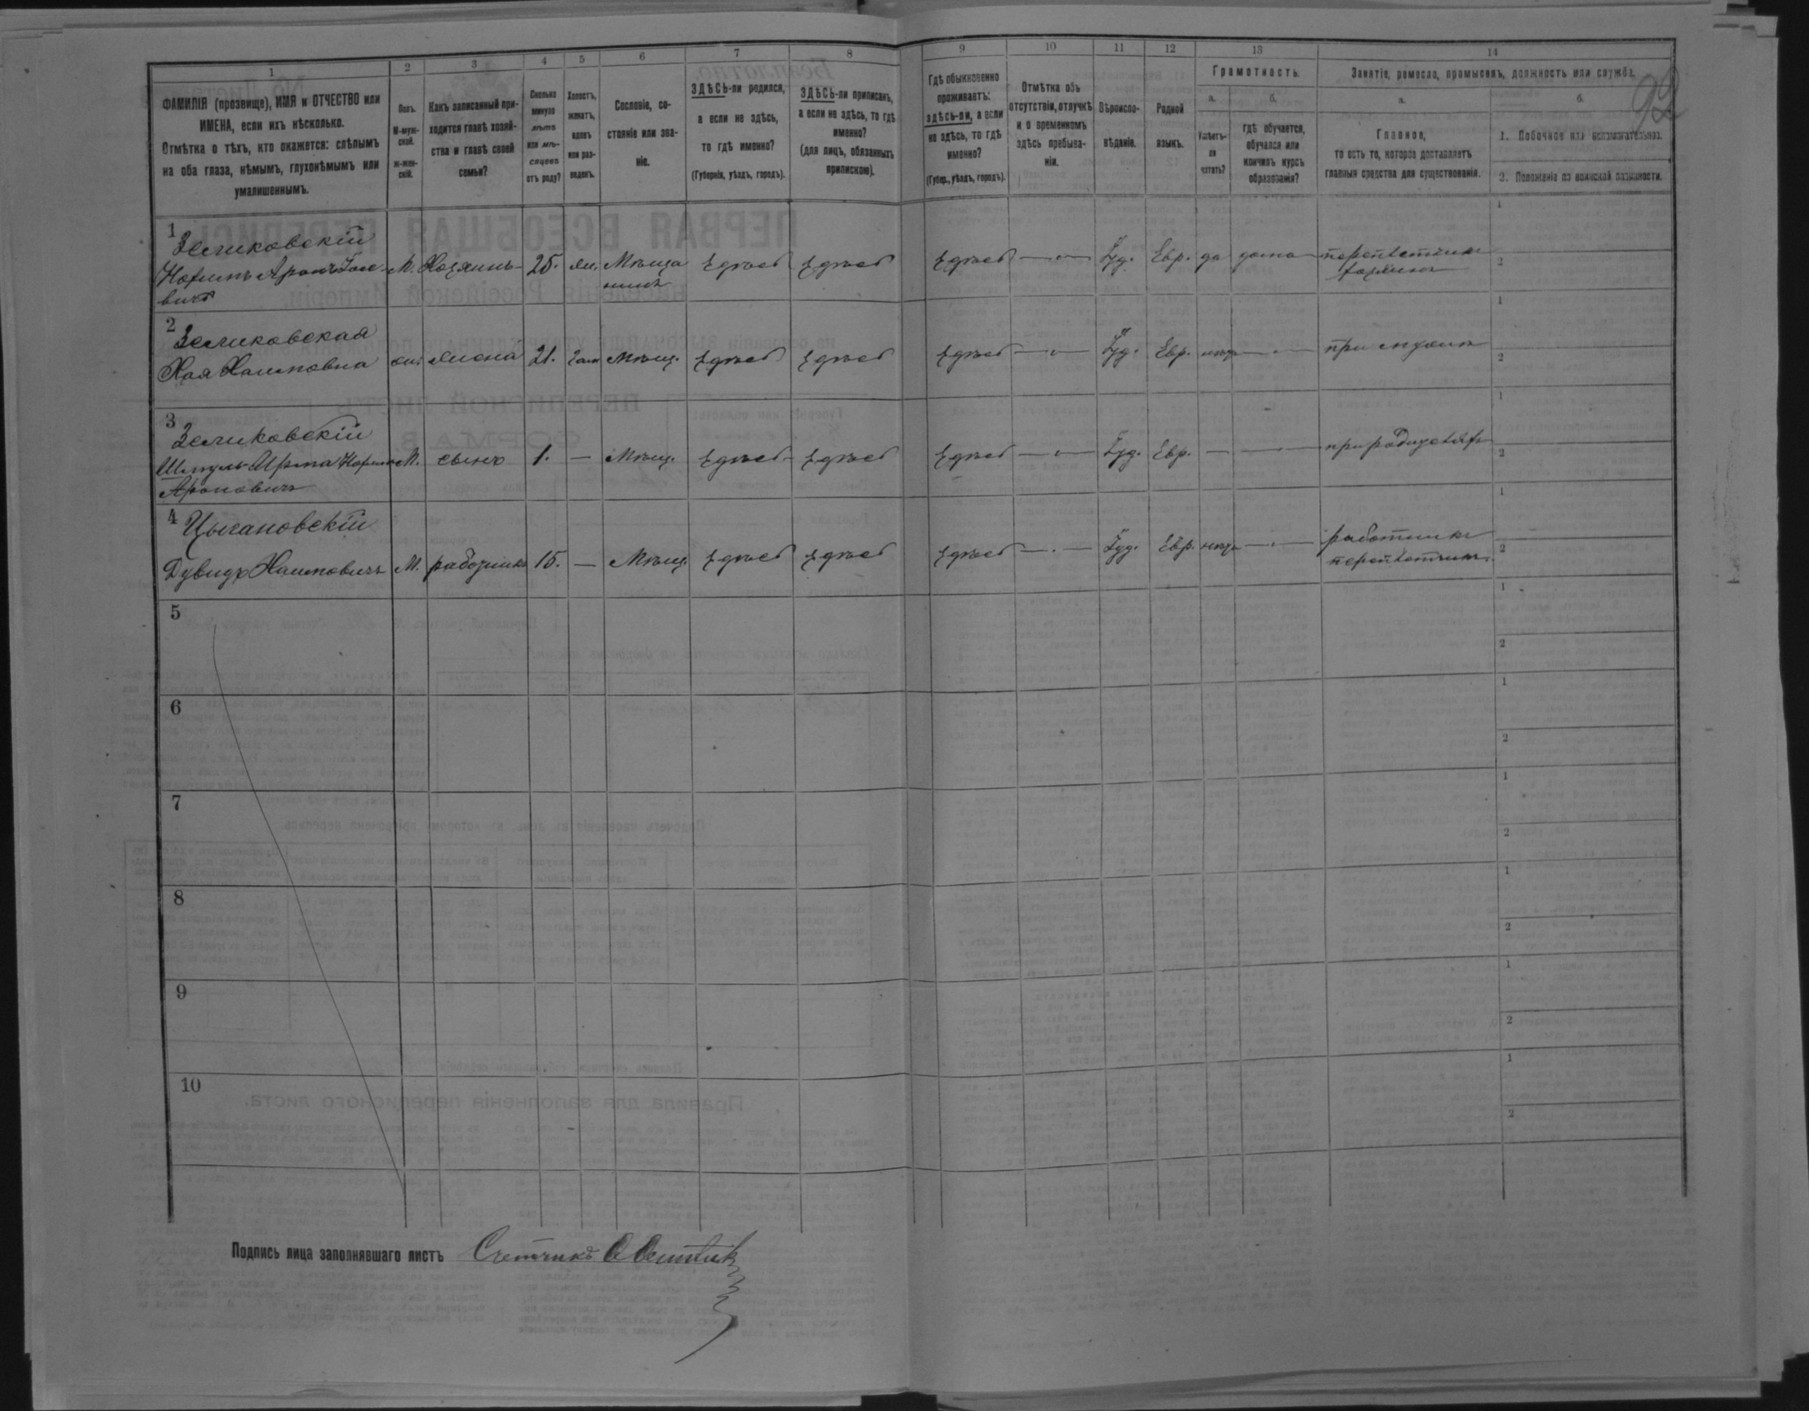 1 2 3 4 5 6 7 8 9 10 11 12 13 14
ФАМИЛІЯ (прозвище), ИМЯ и ОТЧЕСТВО или
ИМЕНА, если ихъ нѣсколько.
Отмѣтка о тѣхъ, кто окажется: слѣпымъ
на оба глаза, нѣмымъ, глухонѣмымъ или
умалишеннымъ.
Полъ.
М-муж-
ской.
Ж-жен-
скій.
Какъ записанный при-
ходится главѣ хозяй-
ства и главѣ своей
семьи?
Сколько
минуло
лѣтъ
или мѣ-
сяцевъ
отъ роду?
Холостъ,
женатъ,
вдовъ
или раз-
веденъ.
Сословіе, со-
стояніе или зва-
ніе.
ЗДѢСЬ-ли родился,
а если не здѣсь,
то гдѣ именно?
(Губернія, уѣздъ, городъ).
ЗДѢСЬ-ли приписанъ,
а если не здѣсь, то гдѣ
именно?
(для лицъ, обязанныхъ
припискою).
Гдѣ обыкновенно
проживаетъ:
здѣсь-ли, а если
не здѣсь, то гдѣ
именно?
(Губер., уѣздъ, городъ).
Отмѣтка объ
отсутствіи, отлучкѣ
и о временномъ
здѣсь пребыва-
ніи.
Вѣроиспо-
вѣданіе.
Родной
языкъ.
Грамотность.
а.
Умѣетъ-
ли
читать?
б.
гдѣ обучается,
обучался или
кончилъ курсъ
образованія?
Занятіе, ремесло, промыселъ, должность или служба.
а.
Главное,
то есть то, которое доставляетъ
главныя средства для существованія.
б.
1. Побочное или вспомогательное.
2. Положеніе по воинской повинности.
92
1 Зеликовскій
М. Хозяинъ 25. жен. Мѣща
нинъ здѣсь здѣсь здѣсь — Іуд. Евр. да дома
2 Зеликовская
Хая Хаимовна жен. жена 21. зам. Мѣщ. здѣсь здѣсь здѣсь — Іуд. Евр. нѣтъ — при мужѣ
3 Зеликовскій
М. сынъ 1. — Мѣщ. здѣсь здѣсь здѣсь — Іуд. Евр. — —
Ароновичъ
4 Цыгановскій
Дувидъ Хаимовичъ М. работникъ 15. — Мѣщ. здѣсь здѣсь здѣсь — Іуд. Евр. нѣтъ — работникъ
5
6
7
8
9
10
Подпись лица заполнявшаго листъ Счетчикъ